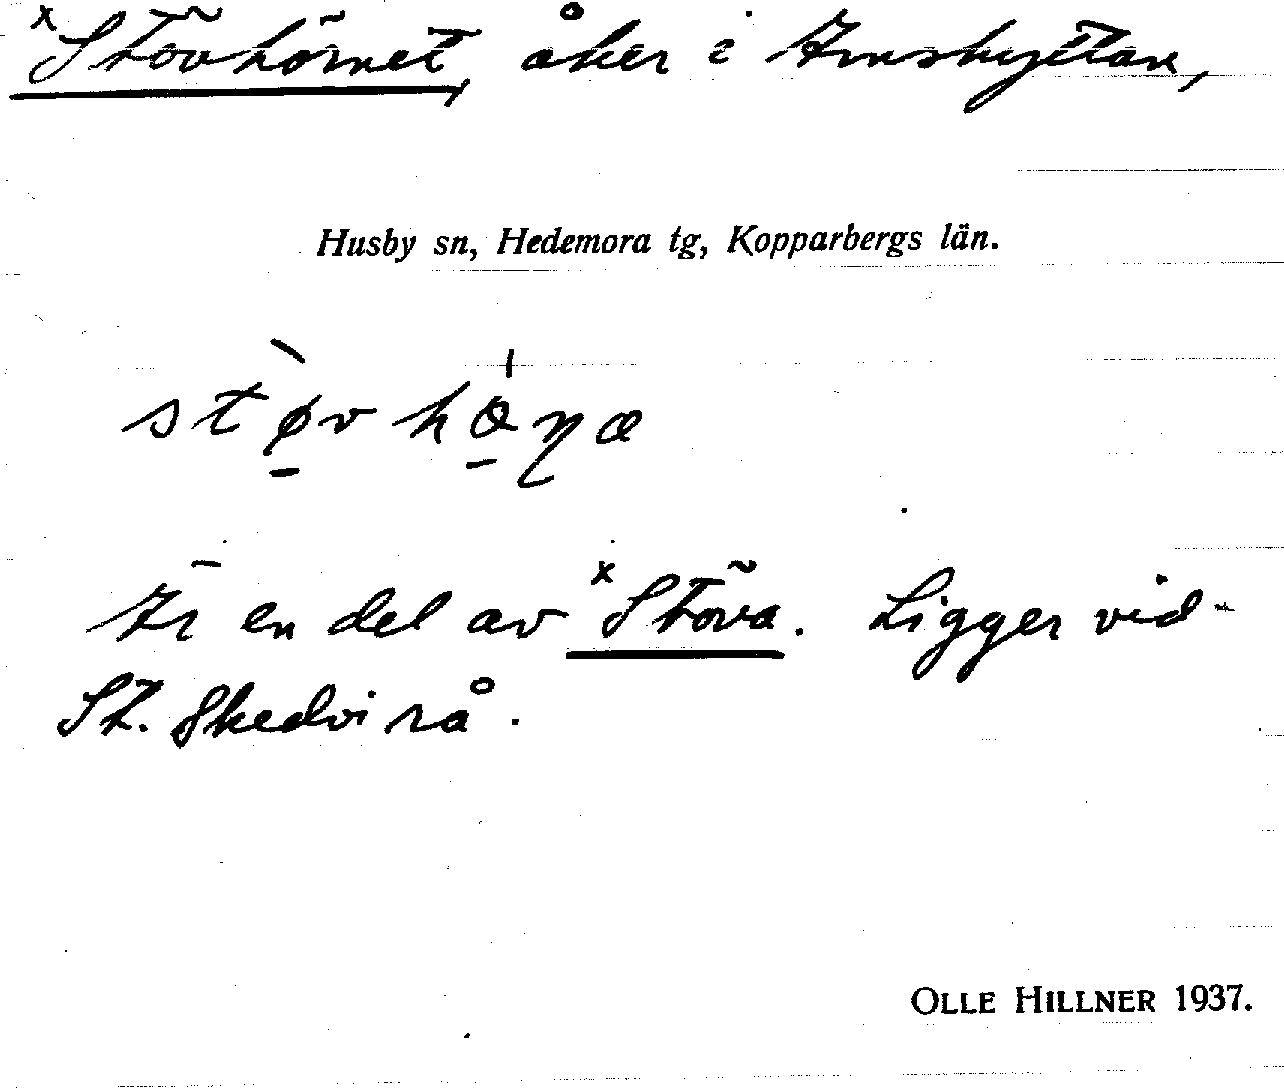 ˣStövhörnet, åker i Arnshyttan,
Husby sn, Hedemora tg, Kopparbergs län.
Är en del av ˣStöva. Ligger vid
St. Skedvi rå.
OLLE HILLNER 1937.